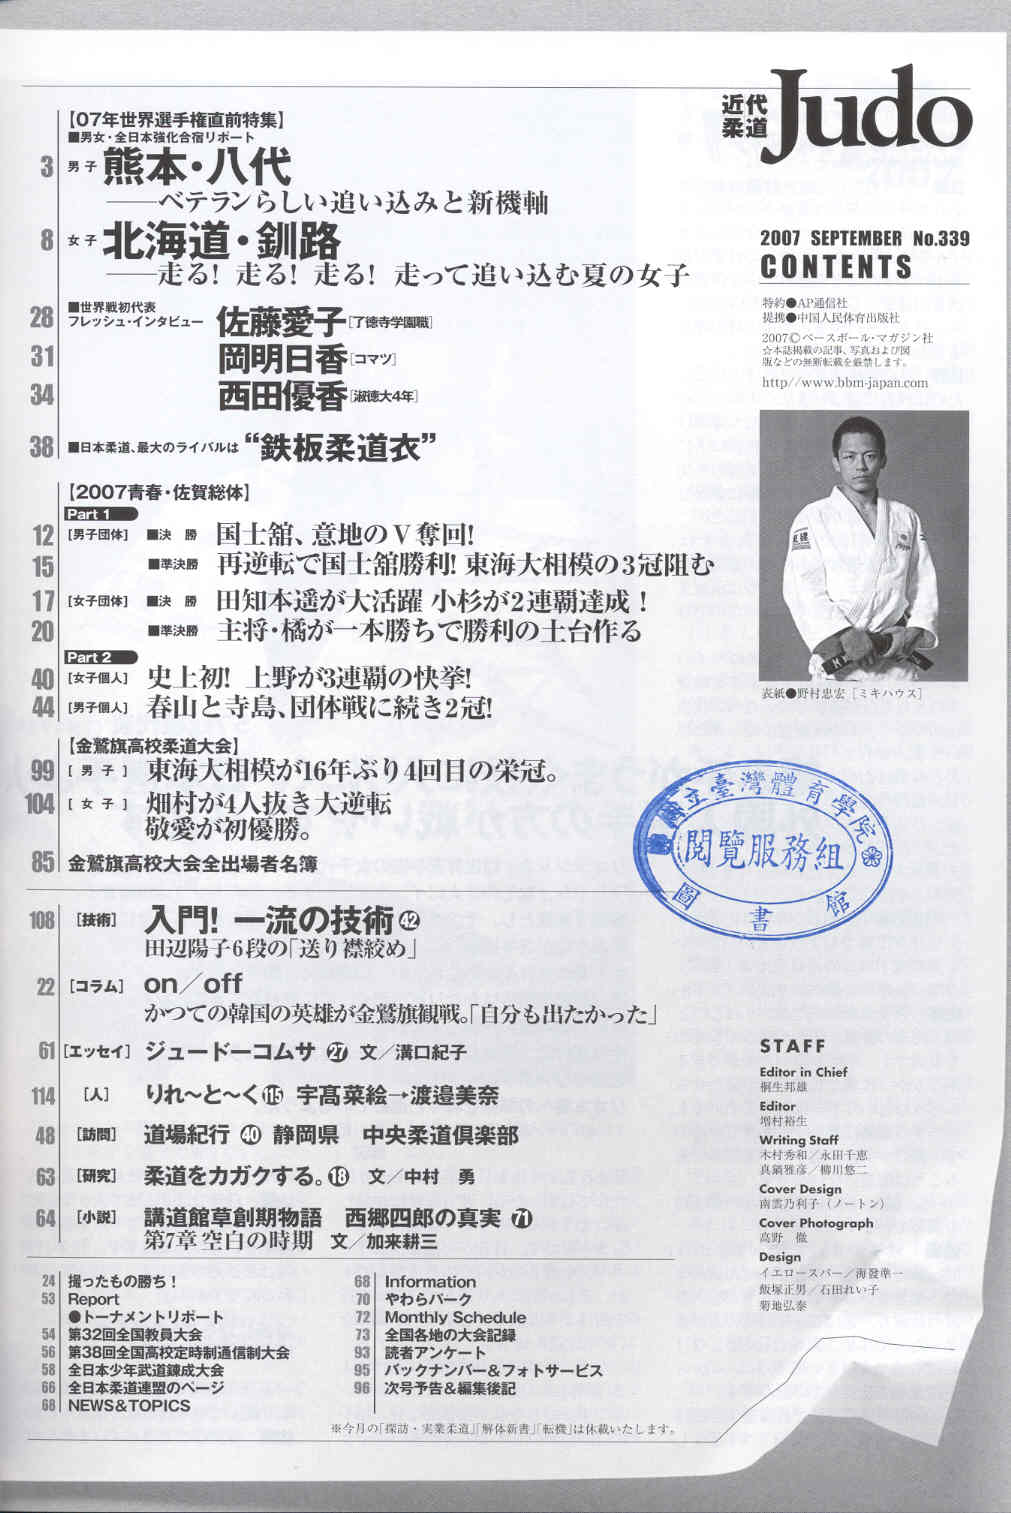 近代柔道 Judo
2007 SEPTEMBER No.339
CONTENTS
特約●AP通信社
提携●中国人民体育出版社
2007©ベースボール・マガジン社
☆本誌掲載の記事、写真および図
版などの無断転載を厳禁します。
http//www.bbm-japan.com
表紙●野村忠宏［ミキハウス］
【07年世界選手権直前特集】
■男女・全日本強化合宿リポート
3 男子 熊本・八代
——ベテランらしい追い込みと新機軸
8 女子 北海道・釧路
——走る! 走る! 走る! 走って追い込む夏の女子
■世界戦初代表
フレッシュ・インタビュー
28 佐藤愛子［了徳寺学園職］
31 岡明日香［コマツ］
34 西田優香［淑徳大4年］
38 ■日本柔道、最大のライバルは “鉄板柔道衣”
【2007青春・佐賀総体】
Part 1
12 ［男子団体］ ■決 勝 国士舘、意地のV奪回!
15 ■準決勝 再逆転で国士舘勝利! 東海大相模の3冠阻む
17 ［女子団体］ ■決 勝 田知本遥が大活躍 小杉が2連覇達成!
20 ■準決勝 主将・橘が一本勝ちで勝利の土台作る
Part 2
40 ［女子個人］ 史上初! 上野が3連覇の快挙!
44 ［男子個人］ 春山と寺島、団体戦に続き2冠!
【金鷲旗高校柔道大会】
99 ［男 子］ 東海大相模が16年ぶり4回目の栄冠。
104 ［女 子］ 畑村が4人抜き大逆転
敬愛が初優勝。
85 金鷲旗高校大会全出場者名簿
國立臺灣體育學院
閱覽服務組
圖書館
108 ［技術］ 入門! 一流の技術㊷
田辺陽子6段の「送り襟絞め」
22 ［コラム］ on／off
かつての韓国の英雄が金鷲旗観戦。「自分も出たかった」
61 ［エッセイ］ ジュードーコムサ ㉗ 文／溝口紀子
114 ［人］ りれ〜と〜く 115 宇髙菜絵→渡邉美奈
48 ［訪問］ 道場紀行 ㊵ 静岡県 中央柔道倶楽部
63 ［研究］ 柔道をカガクする。⑱ 文／中村 勇
64 ［小説］ 講道館草創期物語 西郷四郎の真実 71
第7章 空白の時期 文／加来耕三
24 撮ったもの勝ち!
53 Report
●トーナメントリポート
54 第32回全国教員大会
56 第38回全国高校定時制通信制大会
58 全日本少年武道錬成大会
66 全日本柔道連盟のページ
68 NEWS&TOPICS
68 Information
70 やわらパーク
72 Monthly Schedule
73 全国各地の大会記録
93 読者アンケート
95 バックナンバー&フォトサービス
96 次号予告&編集後記
※今月の「探訪・実業柔道」「解体新書」「転機」は休載いたします。
STAFF
Editor in Chief
桐生邦雄
Editor
増村裕生
Writing Staff
木村秀和／永田千恵
真鍋雅彦／柳川悠二
Cover Design
南雲乃利子（ノートン）
Cover Photograph
高野 徹
Design
イエロースパー／海發準一
飯塚正男／石田れい子
菊地弘泰